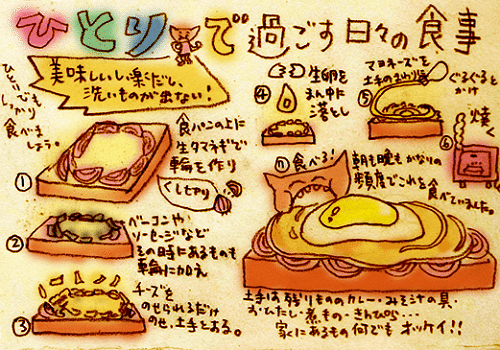 ひとりで過ごす日々の食事
美味しいし楽だし、
洗いものが出ない!
ひとりでも
しっかり
食べま
しょう。
①
食パンの上に
生タマネギで
輪を作り
くしもやり
②
ベーコンや
ソーセージなど
その時にあるものも
輪に加え
③
チーズを
のせられるだけ
のせ、土手とする。
④
生卵を
まん中に
落とし
⑤
マヨネーズを
土手のまわり
ぐるぐると
かけ
⑥
焼く
⑦
食べる!
朝も晩もかなりの
頻度でこれを
食べていました。
土手は残りもののカレー・みそ汁の具、
おひたし・煮もの・きんぴら・・・
家にあるもの何でもオッケイ!!